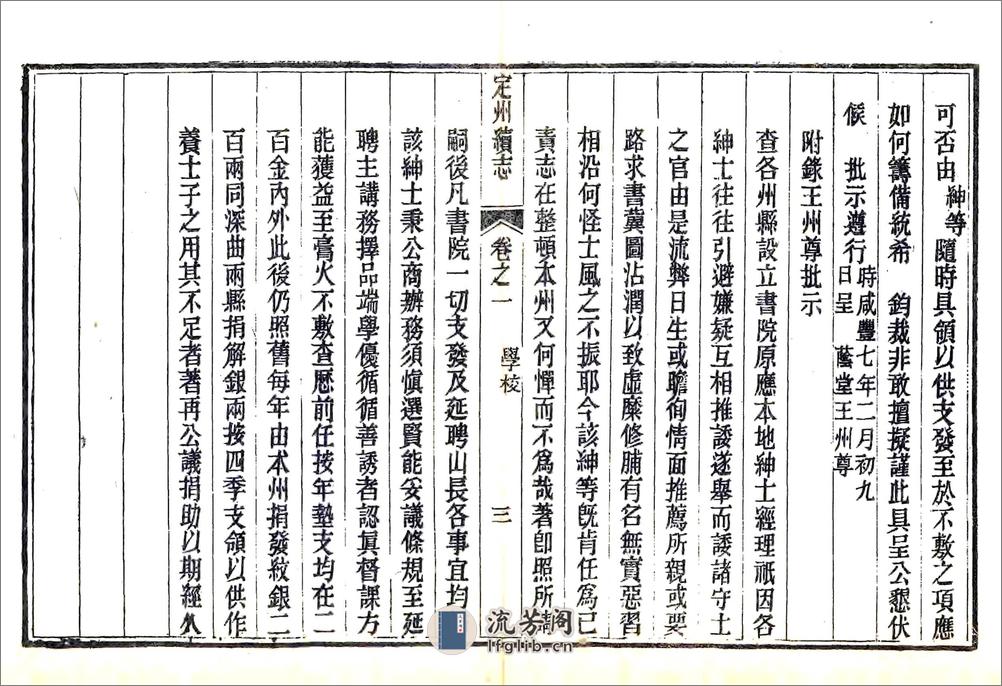 可否由紳等隨時具領以供支發至於不敷之項應
如何籌備統希 鈞裁非敢擅擬謹此具呈公懇伏
候 批示遵行時咸豐七年二月初九日呈 蔭堂王州尊
附錄王州尊批示
查各州縣設立書院原應本地紳士經理祇因各
紳士往往引避嫌疑互相推諉遂舉而諉諸守土
之官由是流弊日生或瞻徇情面推薦所親或要
路求書冀圖沾潤以致虛糜修脯有名無實惡習
相沿何怪士風之不振耶今該紳等旣肯任爲己
責志在整頓本州又何憚而不爲哉著卽照所
定州續志 卷之一 學校 三
嗣後凡書院一切支發及延聘山長各事宜均
該紳士秉公商辦務須愼選賢能妥議條規至延
聘主講務擇品端學優循循善誘者認眞督課方
能獲益至膏火不敷查歷前任按年墊支均在二
百金內外此後仍照舊每年由本州捐發紋銀二
百兩同深曲兩縣捐解銀兩按四季支領以供作
養士子之用其不足者著再公議捐助以期經久
流芳閣
lfglib.cn